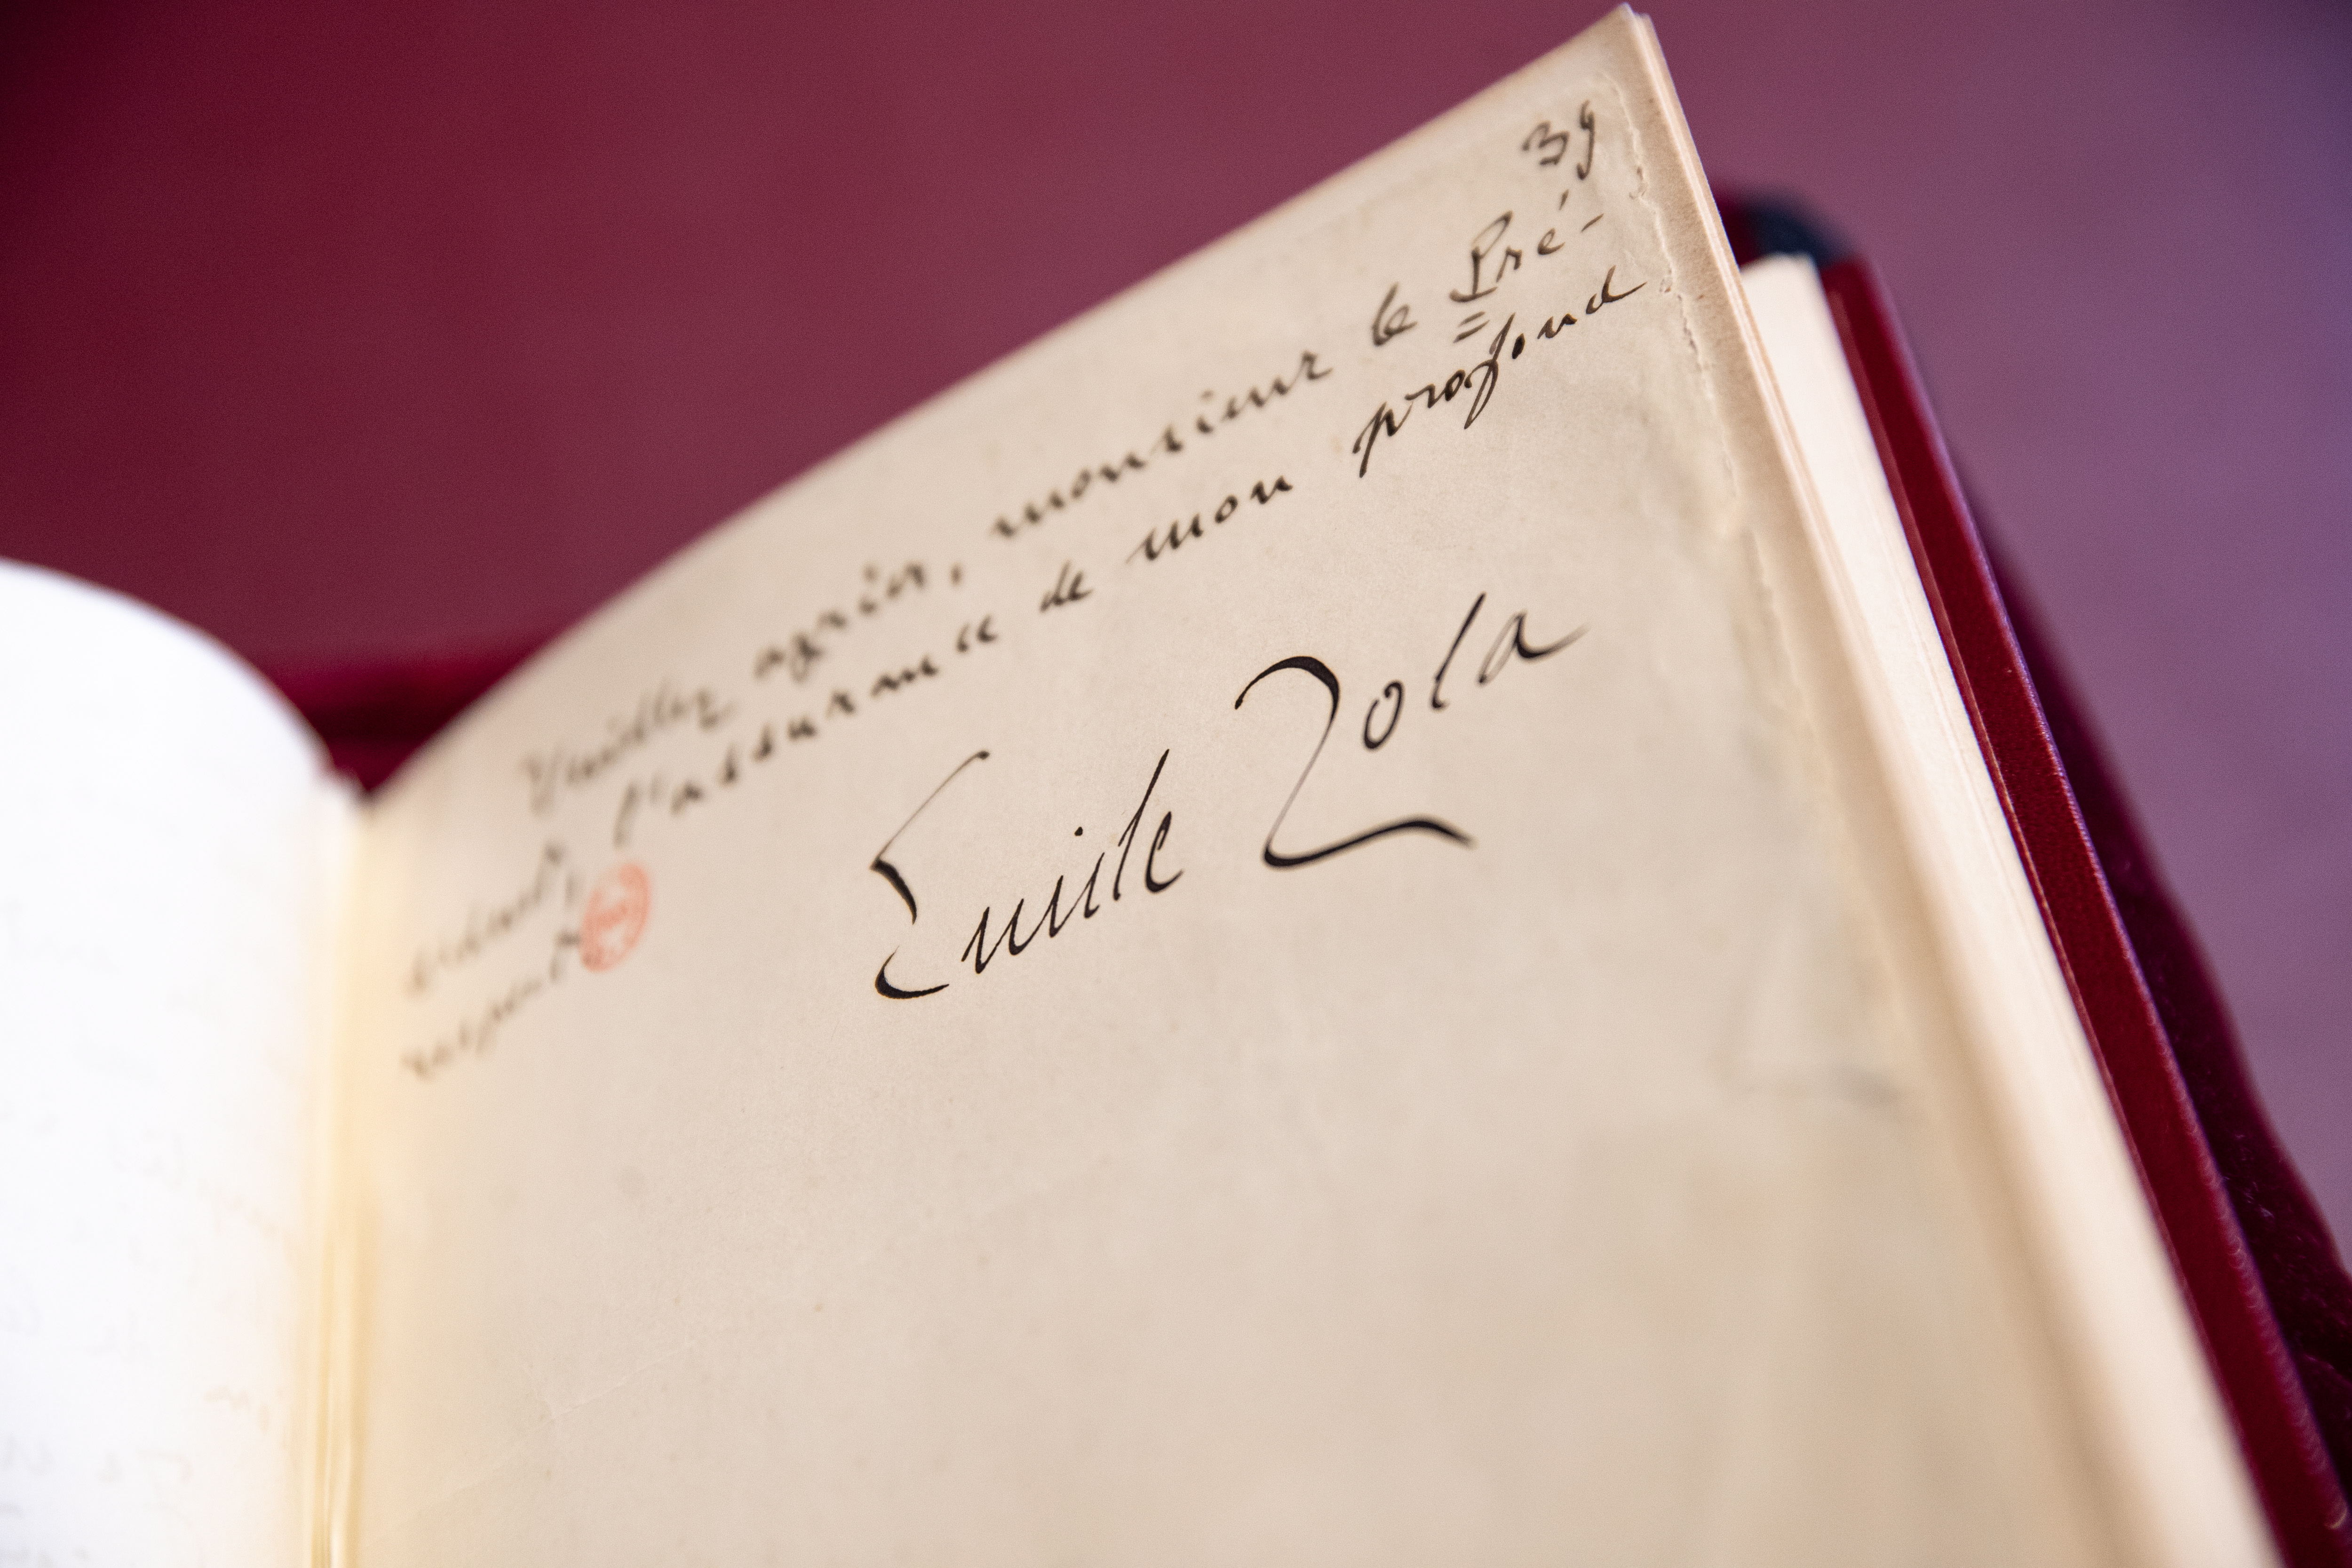 39
Veuillez agréer, monsieur le Pré-
sident, l'assurance de mon profond
respect.
Émile Zola